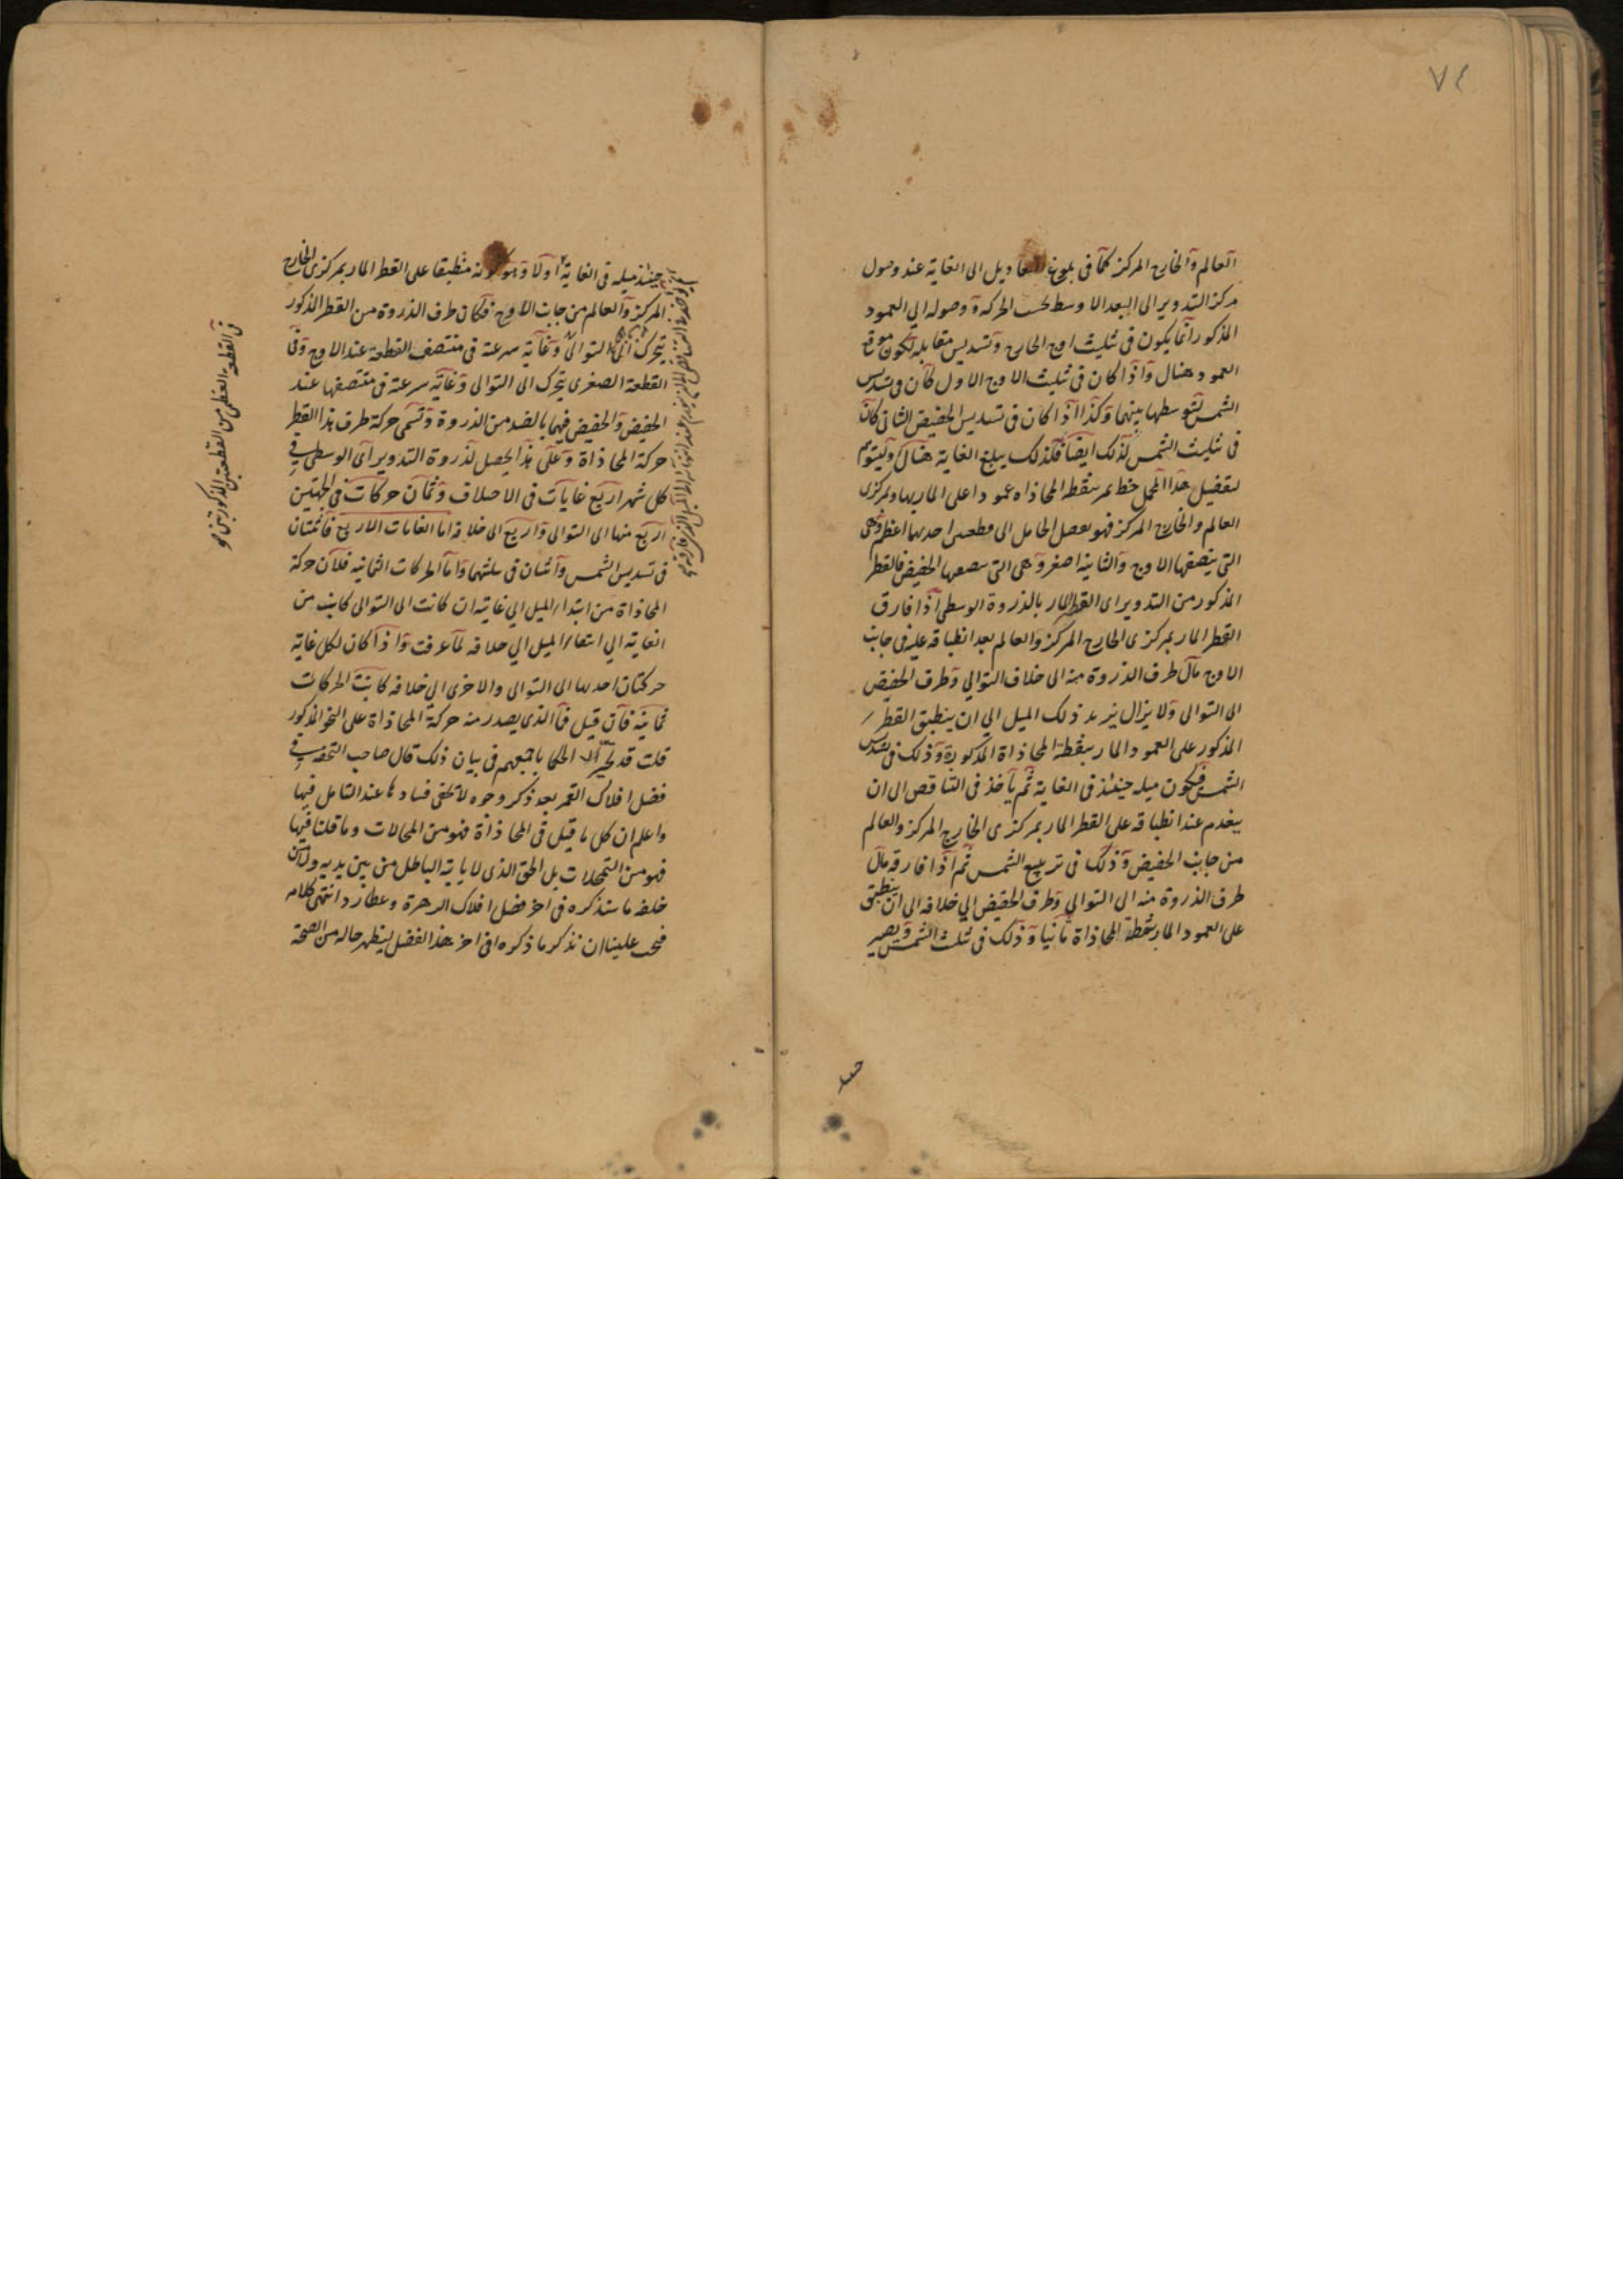 ٧٤
العالم والخارج المركز كما فى بلوغ التعاديل الى الغاية عند وصول
مركز التدوير الى البعد الاوسط بحسب الحركة ووصوله الى العمود
المذكور انما يكون فى تثليث اوج الخارج وتسديس مقابله لكون موقع
العمود هنال واذا كان فى تثليث الاوج الاول كان فى تسديس
الشمس لتوسطها بينهما وكذا اذا كان فى تسديس الحضيض الثانى كان
فى تثليث الشمس لذلك ايضا فلذلك يبلغ الغاية هنال وليتوهم
لتفصيل هذا المجمل خط يمر بنقطه المحاذاه عمودا على المار بها وبمركزى
العالم والخارج المركز فهو يفصل الحامل الى قطعتين احديهما اعظم وهى
التى ينصفها الاوج والثانية اصغر وهى التى ينصفها الحضيض فالقطر
المذكور من التدوير اى القطر المار بالذروة الوسطى اذا فارق
القطر المار بمركزى الخارج المركز والعالم بعد انطباقه عليه فى جانب
الاوج مال طرف الذروة منه الى خلاف التوالي وطرف الحضيض
الى التوالى ولا يزال يزيد ذلك الميل الي ان ينطبق القطر
المذكور على العمود المار بنقطة المحاذاة المذكورة وذلك فى تسديس
الشمس فيكون ميله حينئذ فى الغاية ثم ياخذ فى التناقص الى ان
ينعدم عند انطباقه على القطر المار بمركزى الخارج المركز والعالم
من جانب الحضيض وذلك فى تربيع الشمس ثم اذا فارقه مال
طرف الذروة منه الى التوالي وطرف الحضيض الي خلافه الى ان ينطبق
على العمود المار بنقطة المحاذاة ثانيا وذلك فى تثليث الشمس ويصير
حينئذ ميله فى الغاية اولا وهو كونه منطبقا على القطر المار بمركزى الخارج
المركز والعالم من جانب الاوج فكان طرف الذروة من القطر المذكور
يتحرك الى التوالى وغاية سرعته فى منتصف القطعة عند الاوج وفى
القطعة الصغرى يتحرك الى التوالى وغاية سرعته فى منتصفها عند
الحضيض والحضيض فيهما بالضد من الذروة وتسمى حركة طرف هذا القطر
حركة المحاذاة وعلى هذا يحصل لذروة التدوير اى الوسطى فى
كل شهر اربع غايات فى الاختلاف وثمان حركات فى الجهتين
اربع منها الى التوالى واربع الى خلافه اما الغايات الاربع فاثنتان
فى تسديس الشمس واثنتان فى تثليثها واما الحركات الثمانيه فلان حركة
المحاذاة من ابتداء الميل الي غايته ان كانت الى التوالى كانت من
الغاية الي انتفاء الميل الي خلافه لما عرفت واذا كان لكل غاية
حركتان احديها الى التوالى والاخرى الى خلافه كانت الحركات
ثمانية فان قيل فما الذى يصدر منه حركة المحاذاة على النحو المذكور
قلت قد تحير الحكما باجمعهم فى بيان ذلك قال صاحب التحفة فى
فصل افلاك القمر بعد ذكر وجوه لا تخفى فسادها عند التامل فيها
واعلم ان كل ما قيل فى المحاذاة فهو من المحالات وما قلنا فيها
فهو من التمحلات بل الحق الذى لا ياتيه الباطل من بين يديه ولا من
خلفه ما سنذكره فى اخر فصل افلاك الزهرة وعطارد انتهى كلامه
فيجب علينا ان نذكر ما ذكره فى اخر هذا الفصل ليظهر حاله من الصحة
فى القطعة العظمى من القطعتين المذكورتين